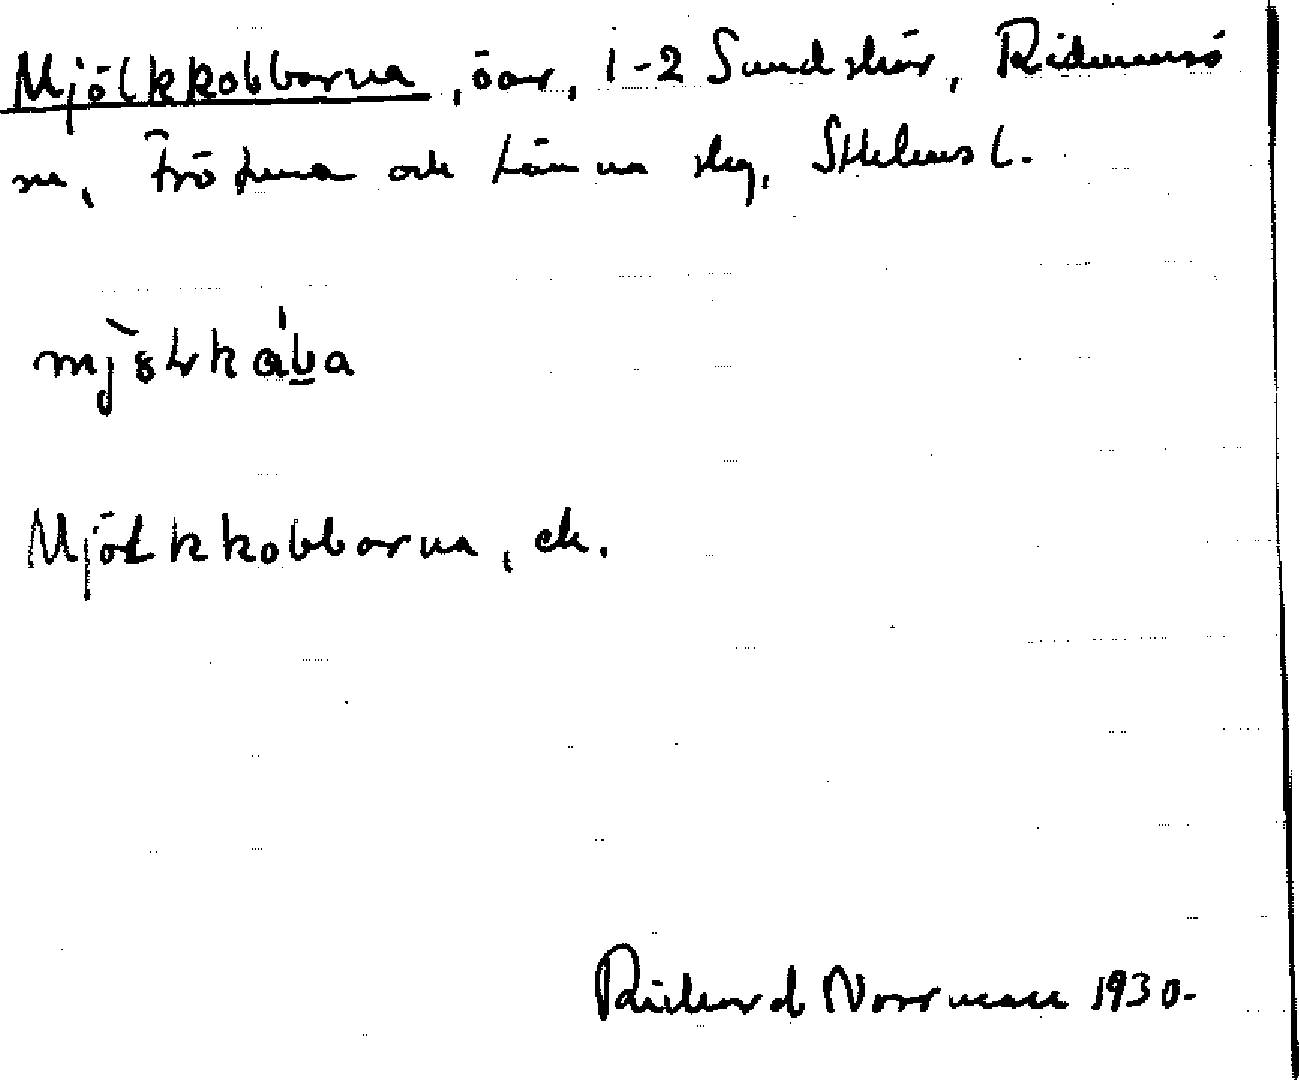 Mjölkkobbarna, öar, 1-2 Sundskär, Ridmansö
sn, Frötuna och Länna skg, Sthlms l.
Mjölkkobbarna, ek.
Richard Norrman 1930.